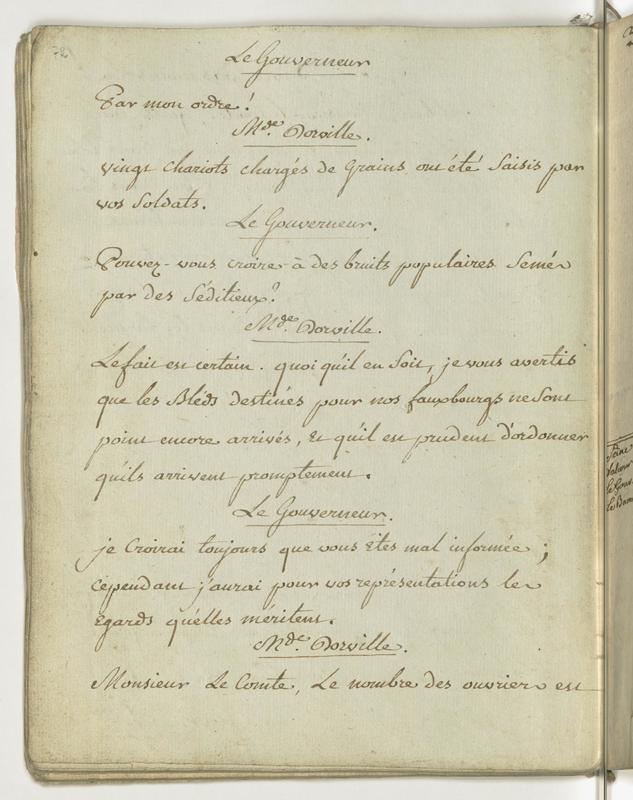 78
Le Gouverneur
Par mon ordre!
Mde. Dorville.
vingt chariots chargés de Grains ont été Saisis par
vos Soldats.
Le Gouverneur.
Pouvez-vous croire à des bruits populaires Semés
par des Séditieux?
Mde. Dorville.
Le fait est certain. quoi qu'il en Soit, je vous avertis
que les Bleds destinés pour nos fauxbourgs ne Sont
point encore arrivés, & qu'il est prudent d'ordonner
qu'ils arrivent promptement.
Le Gouverneur.
je Croirai toujours que vous Êtes mal informée;
cependant j'aurai pour vos représentations les
Égards qu'elles méritent.
Mde. Dorville.
Monsieur Le Comte, Le nombre des ouvriers est